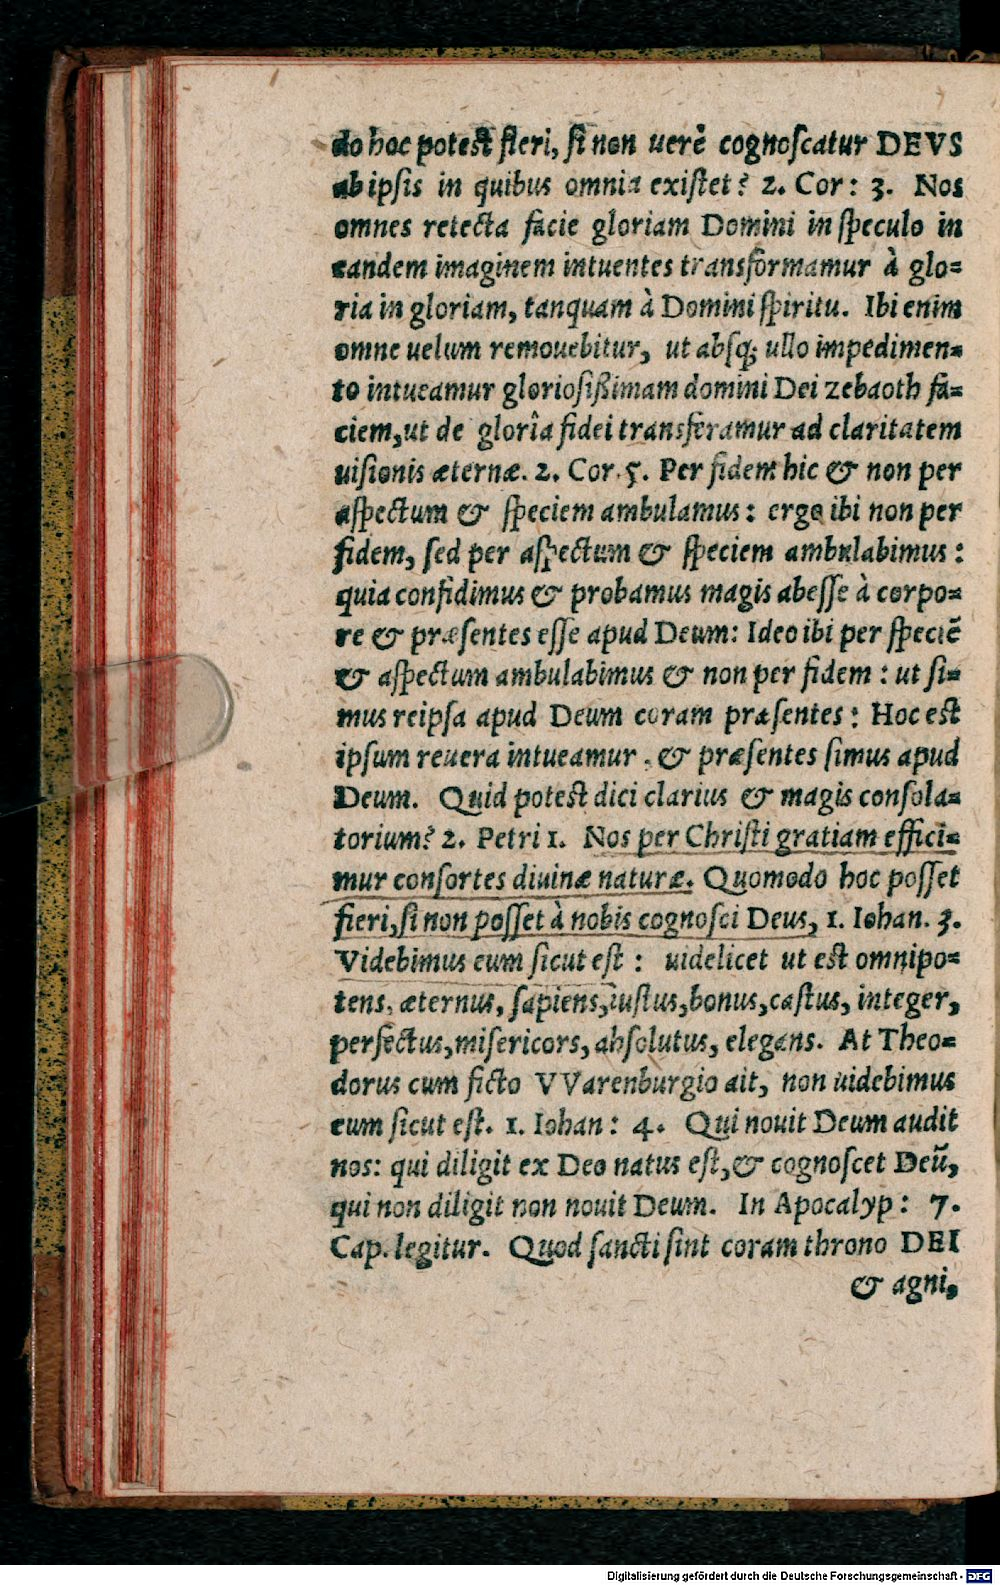 do hoc potest fieri, si non uerè cognoscatur DEVS
ab ipsis in quibus omnia existet? 2. Cor: 3. Nos
omnes retecta facie gloriam Domini in speculo in
eandem imaginem intuentes transformamur à glo=
ria in gloriam, tanquam à Domini spiritu. Ibi enim
omne uelum remouebitur, ut absq; ullo impedimen=
to intueamur gloriosißimam domini Dei zebaoth fa=
ciem, ut de glorîa fidei transferamur ad claritatem
uisionis æternæ. 2. Cor. 5. Per fidem hic & non per
aspectum & speciem ambulamus: ergo ibi non per
fidem, sed per aspectum & speciem ambulabimus:
quia confidimus & probamus magis abesse à corpo=
re & præsentes esse apud Deum: Ideo ibi per speciē
& aspectum ambulabimus & non per fidem: ut si=
mus reipsa apud Deum coram præsentes: Hoc est
ipsum reuera intueamur, & præsentes simus apud
Deum. Quid potest dici clarius & magis consola=
torium? 2. Petri 1. Nos per Christi gratiam effici=
mur consortes diuinæ naturæ. Quomodo hoc posset
fieri, si non posset à nobis cognosci Deus, 1. Iohan. 3.
Videbimus eum sicut est: uidelicet ut est omnipo=
tens, æternus, sapiens, iustus, bonus, castus, integer,
perfectus, misericors, absolutus, elegans. At Theo=
dorus cum ficto VVarenburgio ait, non uidebimus
eum sicut est. 1. Iohan: 4. Qui nouit Deum audit
nos: qui diligit ex Deo natus est, & cognoscet Deū,
qui non diligit non nouit Deum. In Apocalyp: 7.
Cap. legitur. Quod sancti sint coram throno DEI
& agni,
Digitalisierung gefördert durch die Deutsche Forschungsgemeinschaft - DFG